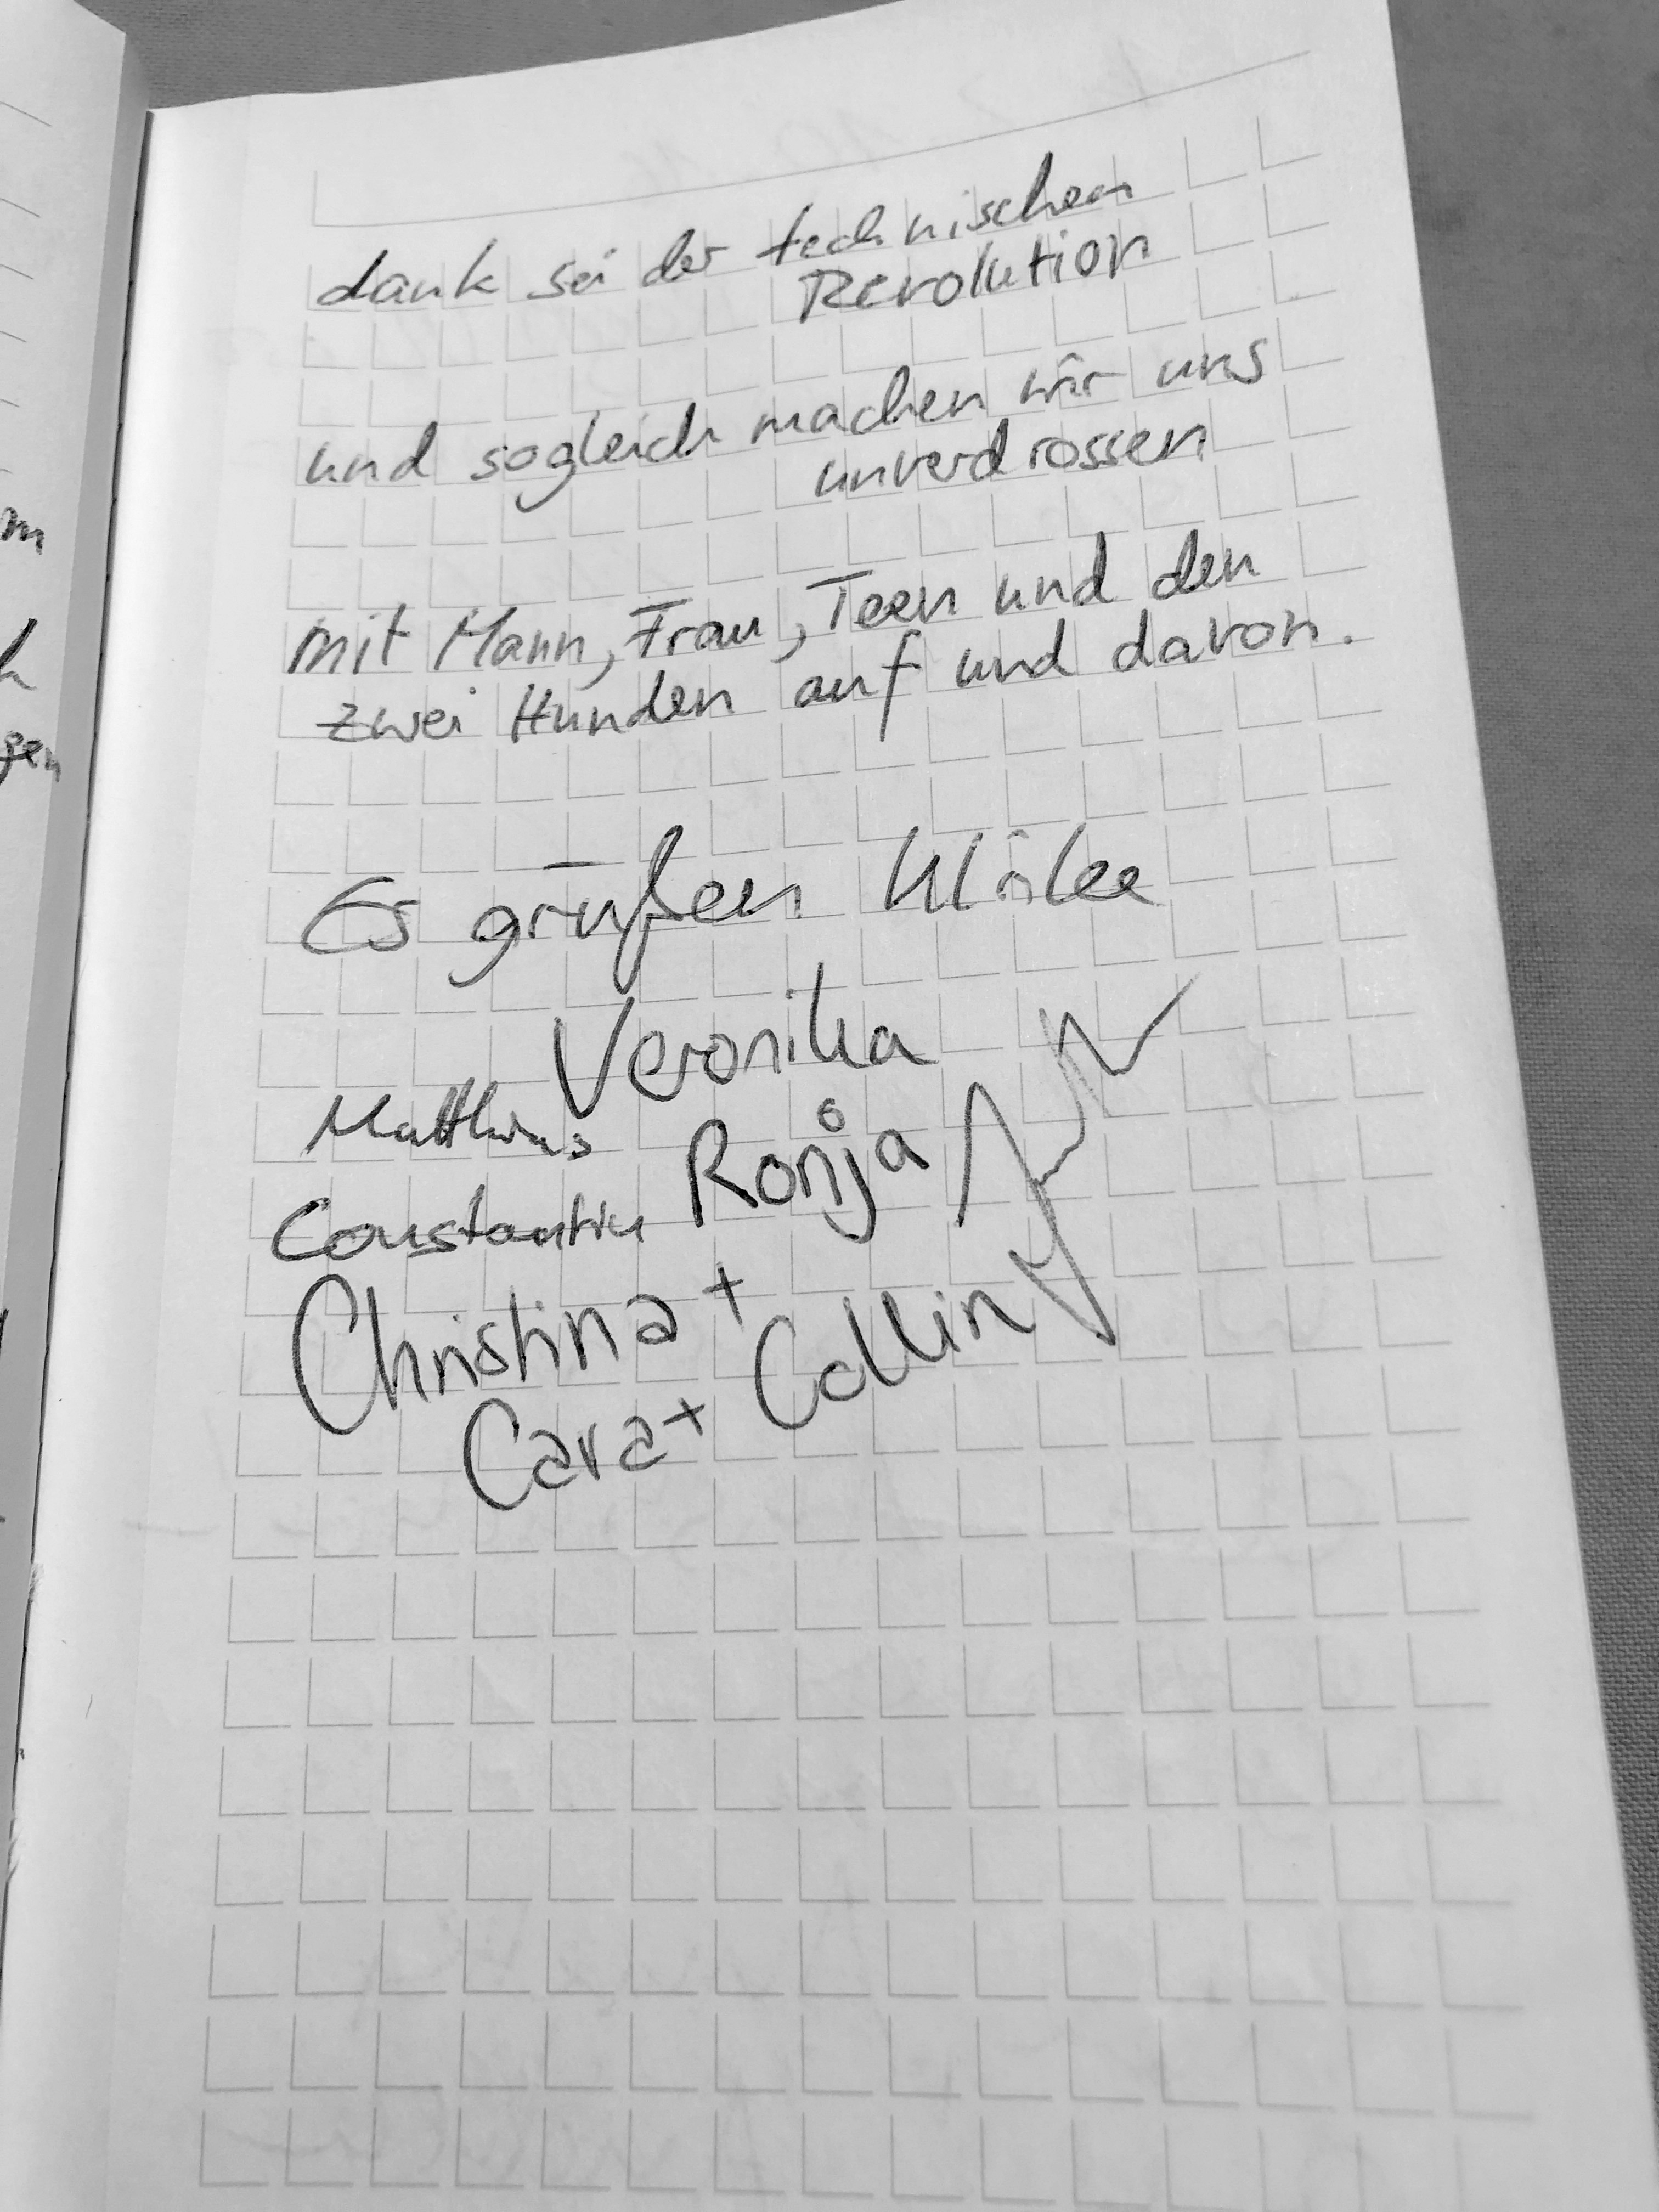 m
h
gen
dank sei der technischen
Revolution
und sogleich machen wir uns
unverdrossen
mit Mann, Frau, Teen und den
zwei Hunden auf und davon.
Es grüßen
Veronika
Matthias
Ronja
Constantin
Christina +
Cara + Collin